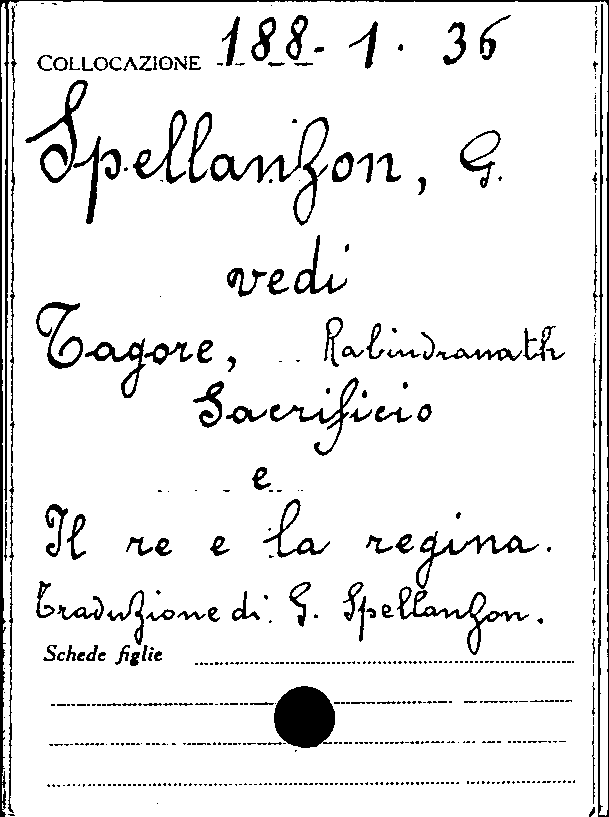 COLLOCAZIONE 188-1. 36
Spellanzon, G.
vedi
Tagore, Rabindranath
Sacrificio
e
Il re e la regina.
Traduzione di G. Spellanzon.
Schede figlie